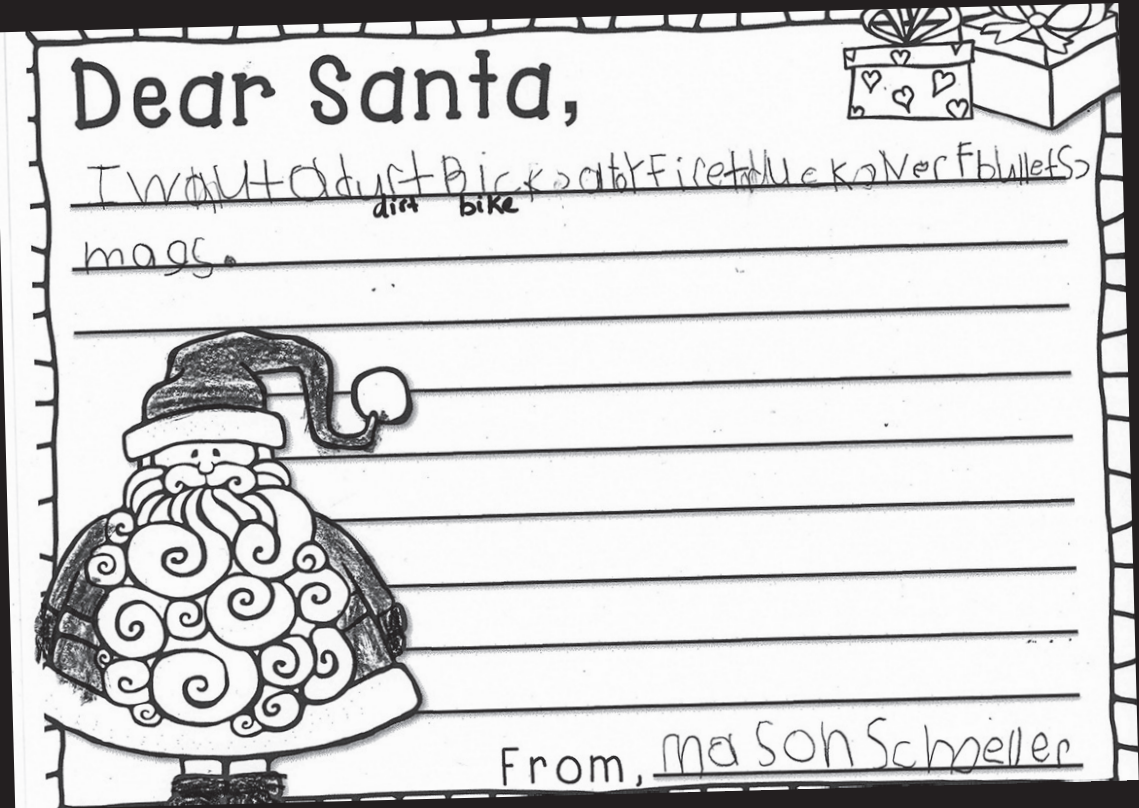 Dear Santa,
I waut a durt Bick, a toy Firetruck, Nerf bullets,
dirt bike
mags.
From, mason Schmeller